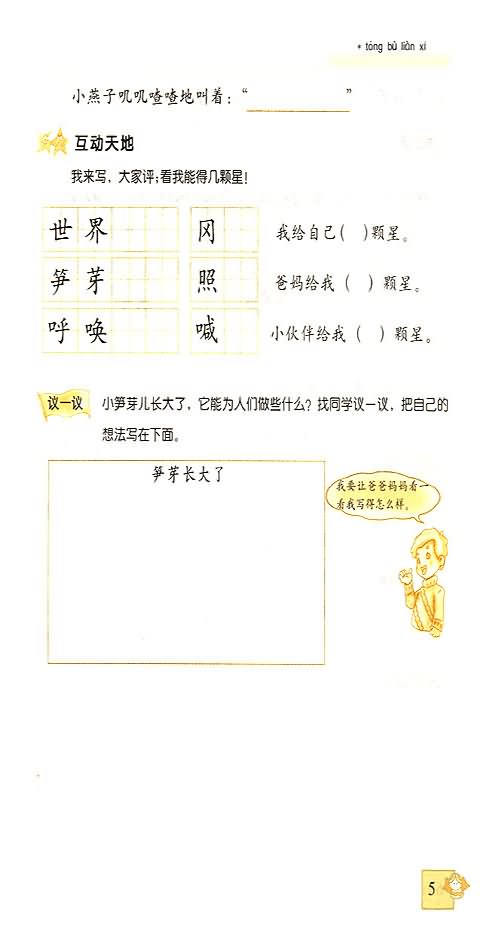 * tóng bù liàn xí
小燕子叽叽喳喳地叫着：“__________”
互动天地
我来写，大家评；看我能得几颗星！
世界 冈 我给自己（ ）颗星。
笋芽 照 爸妈给我（ ）颗星。
呼唤 喊 小伙伴给我（ ）颗星。
议一议 小笋芽儿长大了，它能为人们做些什么？找同学议一议，把自己的
想法写在下面。
笋芽长大了
我要让爸爸妈妈看一
看我写得怎么样。
5